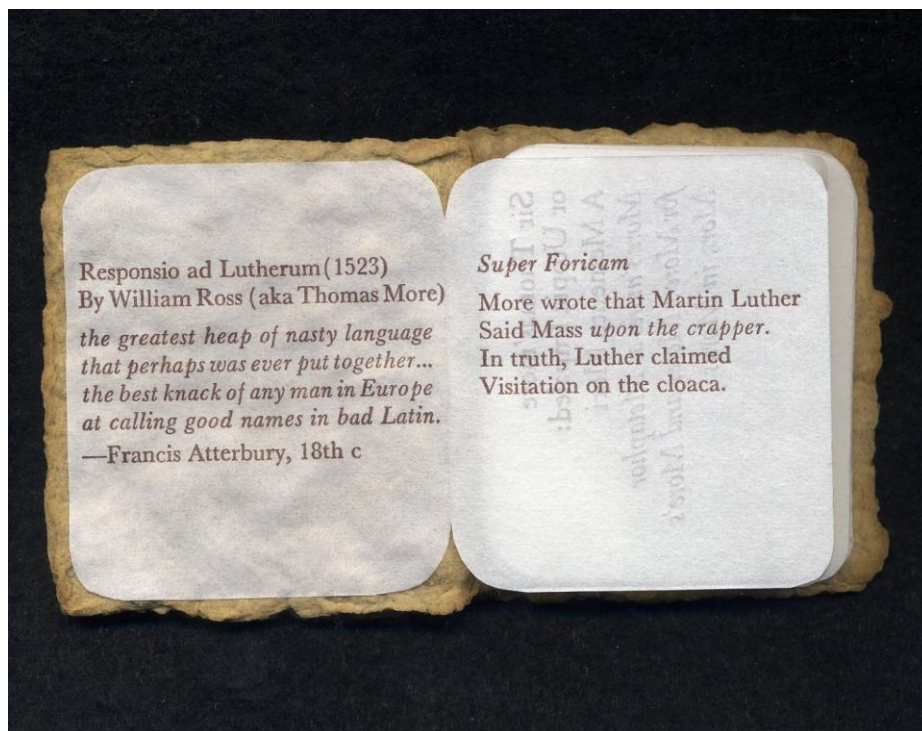 Responsio ad Lutherum (1523)
By William Ross (aka Thomas More)
the greatest heap of nasty language
that perhaps was ever put together...
the best knack of any man in Europe
at calling good names in bad Latin.
—Francis Atterbury, 18th c
Super Foricam
More wrote that Martin Luther
Said Mass upon the crapper.
In truth, Luther claimed
Visitation on the cloaca.